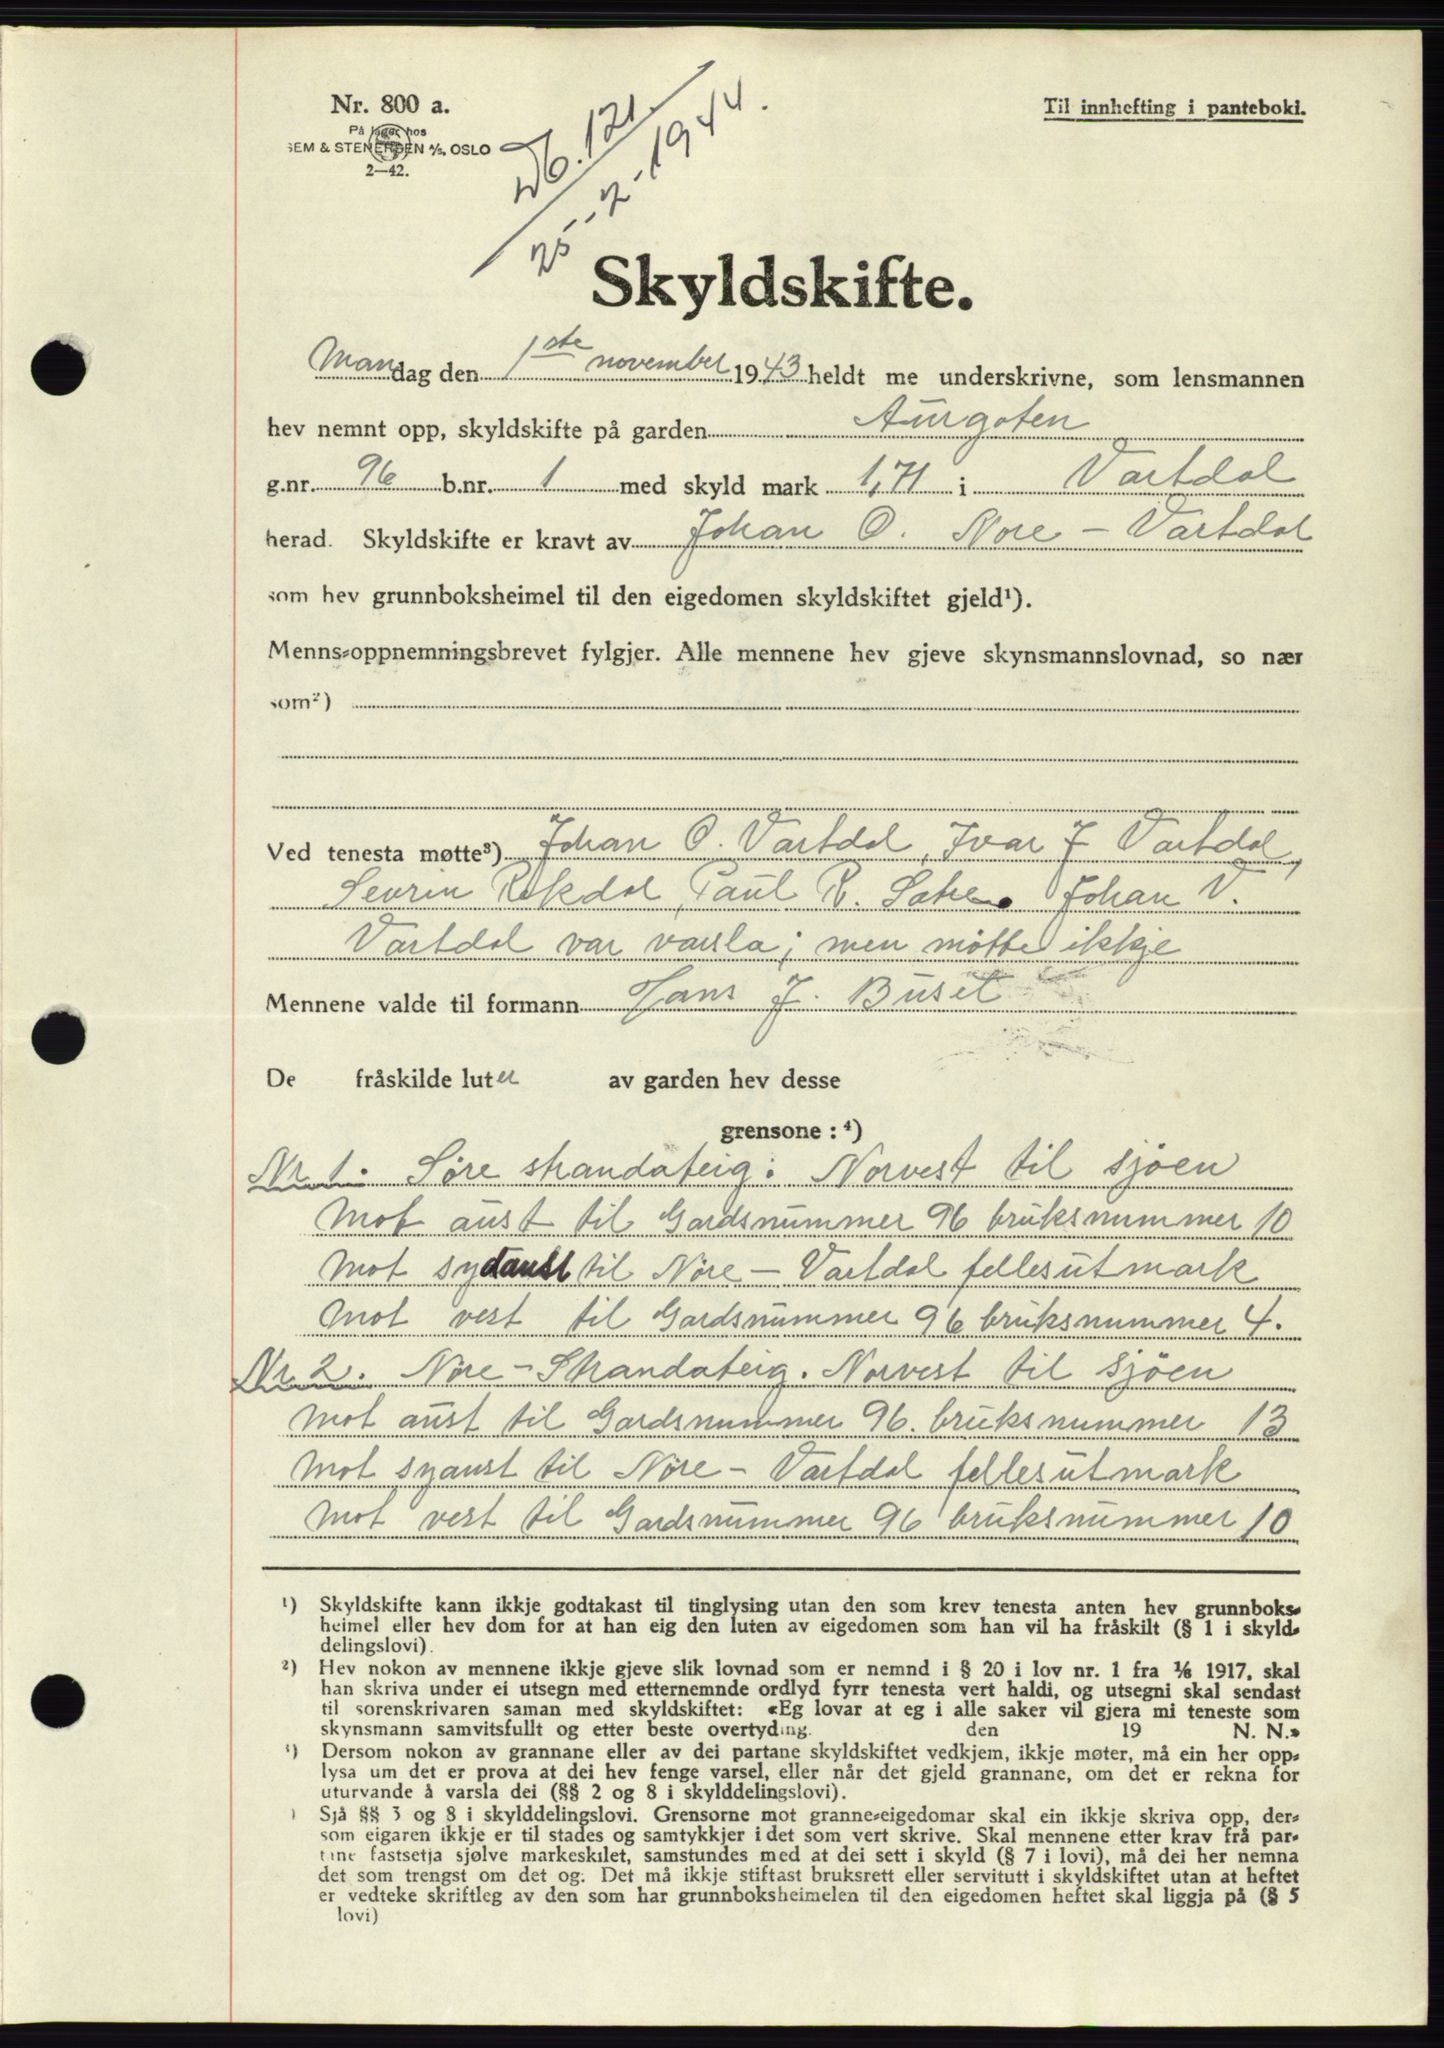 Nr. 800 a.
På lager hos
SEM & STENERSEN A/S, OSLO
2—42.
121.
25-2-1944.
Til innhefting i panteboki.
Skyldskifte.
Mandag den 1ste november 1943 heldt me underskrivne, som lensmannen
hev nemnt opp, skyldskifte på garden Aurgoten
g.nr. 96 b.nr. 1 med skyld mark 1,71 i Vartdal
herad. Skyldskifte er kravt av Johan O. Nore - Vartdal
som hev grunnboksheimel til den eigedomen skyldskiftet gjeld¹).
Menns-oppnemningsbrevet fylgjer. Alle mennene hev gjeve skynsmannslovnad, so nær
som²)
Ved tenesta møtte³) Johan O. Vartdal, Ivar J Vartdal,
Sevrin Rekdal, Paul R. Sætre. Johan V.
Vartdal var varsla; men møtte ikkje
Mennene valde til formann Hans J. Buset
De fråskilde luter av garden hev desse
grensone :⁴)
Nr 1. Søre strandateig. Norvest til sjøen
Mot aust til Gardsnummer 96 bruksnummer 10
mot sydaust til Nøre - Vartdal fellesutmark
mot vest til Gardsnummer 96 bruksnummer 4.
Nr 2. Nøre - Strandateig. Norvest til sjøen
mot aust til Gardsnummer 96. bruksnummer 13
mot syaust til Nøre - Vartdal fellesutmark
mot vest til Gardsnummer 96 bruksnummer 10
¹) Skyldskifte kann ikkje godtakast til tinglysing utan den som krev tenesta anten hev grunnboks-
heimel eller hev dom for at han eig den luten av eigedomen som han vil ha fråskilt (§ 1 i skyld-
delingslovi).
²) Hev nokon av mennene ikkje gjeve slik lovnad som er nemnd i § 20 i lov nr. 1 fra 1/6 1917, skal
han skriva under ei utsegn med etternemnde ordlyd fyrr tenesta vert haldi, og utsegni skal sendast
til sorenskrivaren saman med skyldskiftet: «Eg lovar at eg i alle saker vil gjera mi teneste som
skynsmann samvitsfullt og etter beste overtyding. den 19 N. N.»
³) Dersom nokon av grannane eller av dei partane skyldskiftet vedkjem, ikkje møter, må ein her opp-
lysa um det er prova at dei hev fenge varsel, eller når det gjeld grannane, om det er rekna for
uturvande å varsla dei (§§ 2 og 8 i skylddelingslovi).
) Sjå §§ 3 og 8 i skylddelingslovi. Grensorne mot granne-eigedomar skal ein ikkje skriva opp, der-
som eigaren ikkje er til stades og samtykkjer i det som vert skrive. Skal mennene etter krav frå par-
tane fastsetja sjølve markeskilet, samstundes med at dei sett i skyld (§ 7 i lovi), må dei her nemna
det som trengst om det og. Det må ikkje stiftast bruksrett eller servitutt i skyldskiftet utan at heftet
er vedteke skriftleg av den som har grunnboksheimelen til den eigedomen heftet skal liggja på (§ 5
lovi)